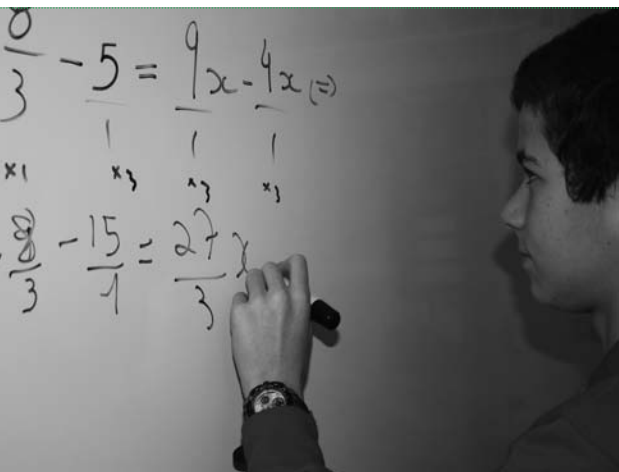 8/3 - 5/1 = 9x/1 - 4x/1 (=)
×1 ×3 ×3 ×3
8/3 - 15/1 = 27/3 x